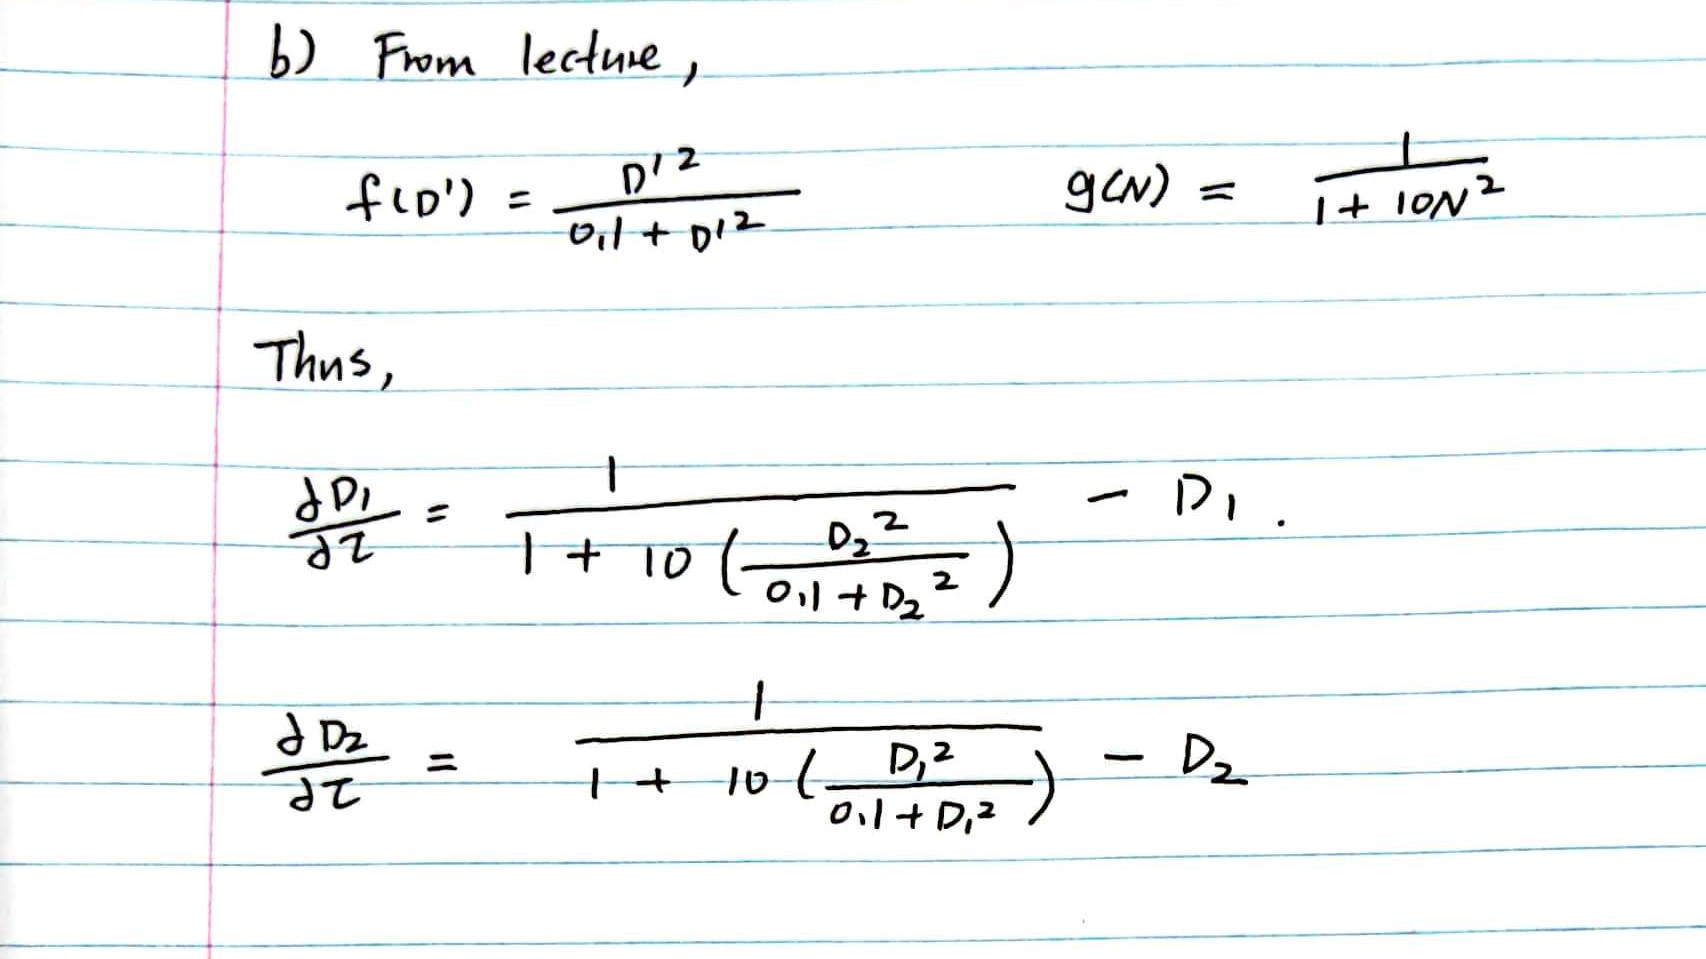 b) From lecture,
f(D') = D'² / (0,1 + D'²)    g(N) = 1 / (1 + 10N²)
Thus,
dD₁/dτ = 1 / (1 + 10 (D₂² / (0,1 + D₂²))) - D₁.
dD₂/dτ = 1 / (1 + 10 (D₁² / (0,1 + D₁²))) - D₂